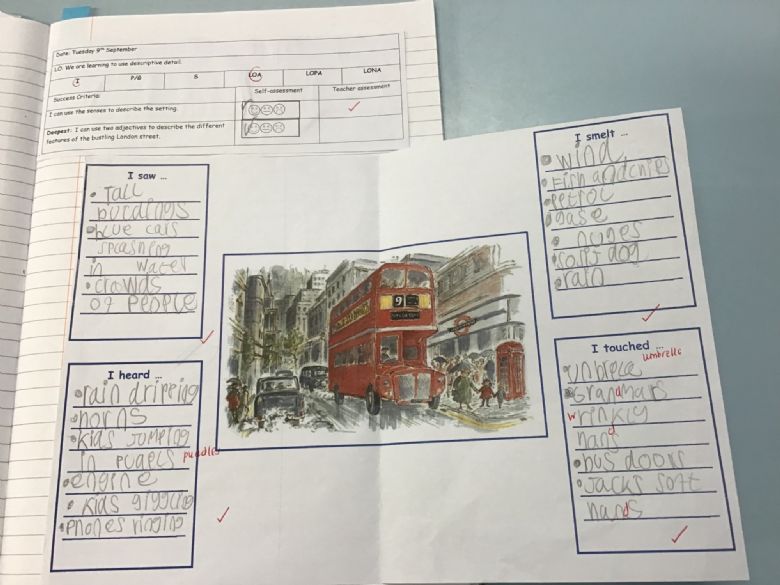 Date: Tuesday 9th September
LO: We are learning to use descriptive detail.
I P/B S LOA LOPA LONA
Success Criteria: Self-assessment Teacher assessment
I can use the senses to describe the setting.
Deepest: I can use two adjectives to describe the different
features of the bustling London street.
I saw ...
Tall
burdings
blue cars
spcashing
in water
crowds
of people
I heard ...
rain dripping
horns
kids jumping
in pugels puddles
engine
kids giggling
phones ringing
9
I smelt ...
wind
Fish and chips
petrol
rain
I touched ...
umbrella
Grandmars
wrinkly
hands
bus doors
Jacks soft
hands